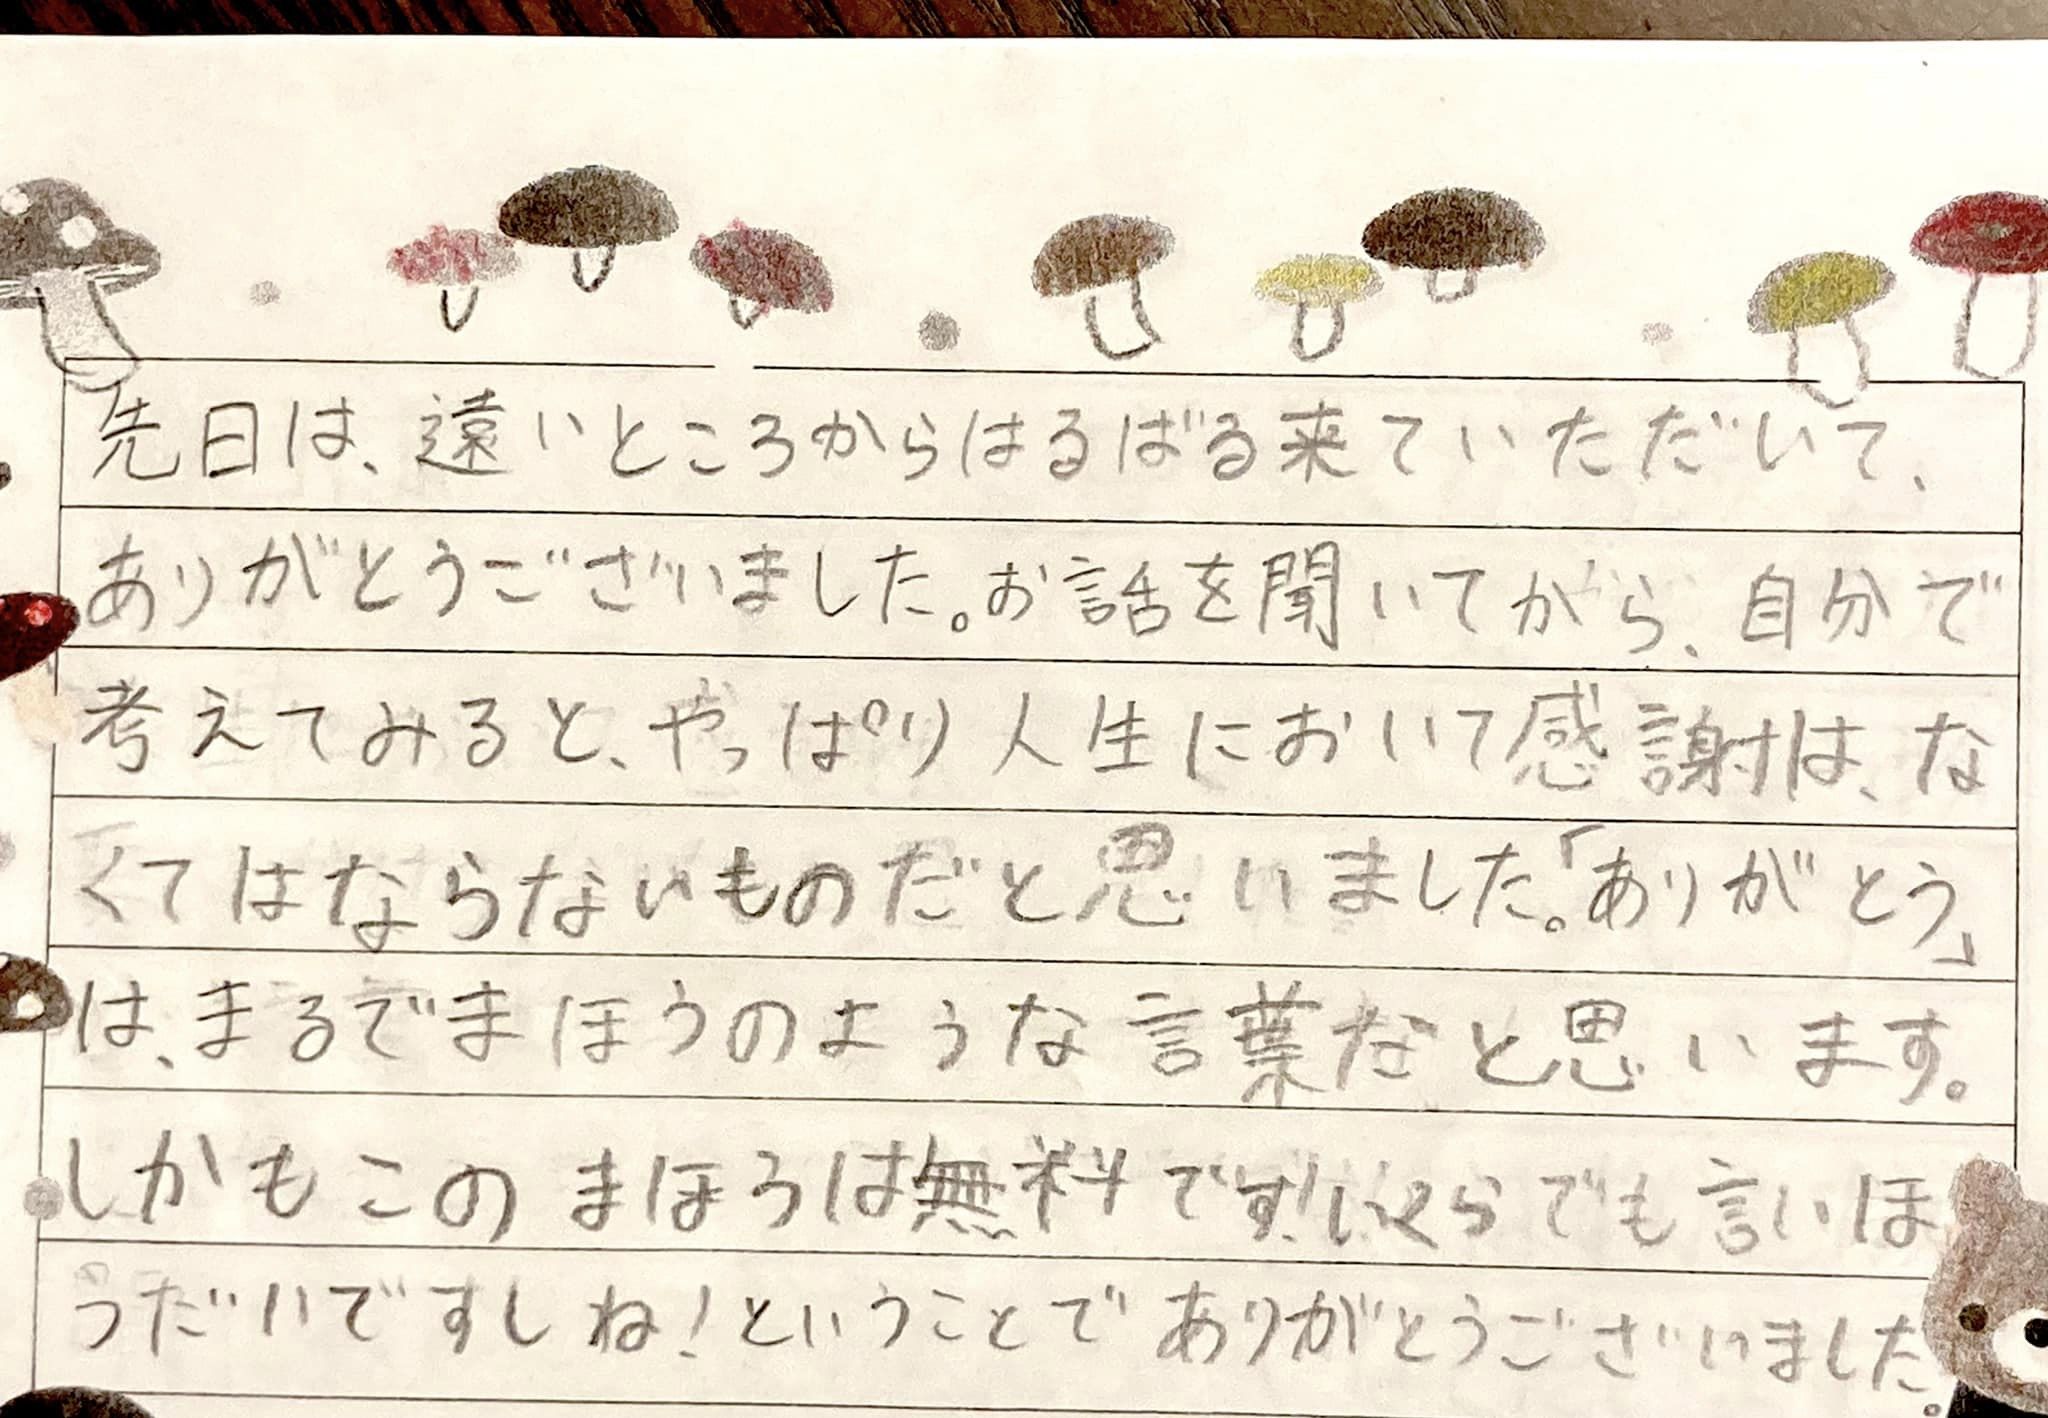 先日は、遠いところからはるばる来ていただいて、
ありがとうございました。お話を聞いてがら、自分で
考えてみると、やっぱり人生において感謝は、な
くてはならないものだと思いました。「ありがとう」
は、まるでまほうのような言葉だと思います。
しかもこのまほうは無料です!いくらでも言いほ
うだいですしね!ということでありがとうございました。